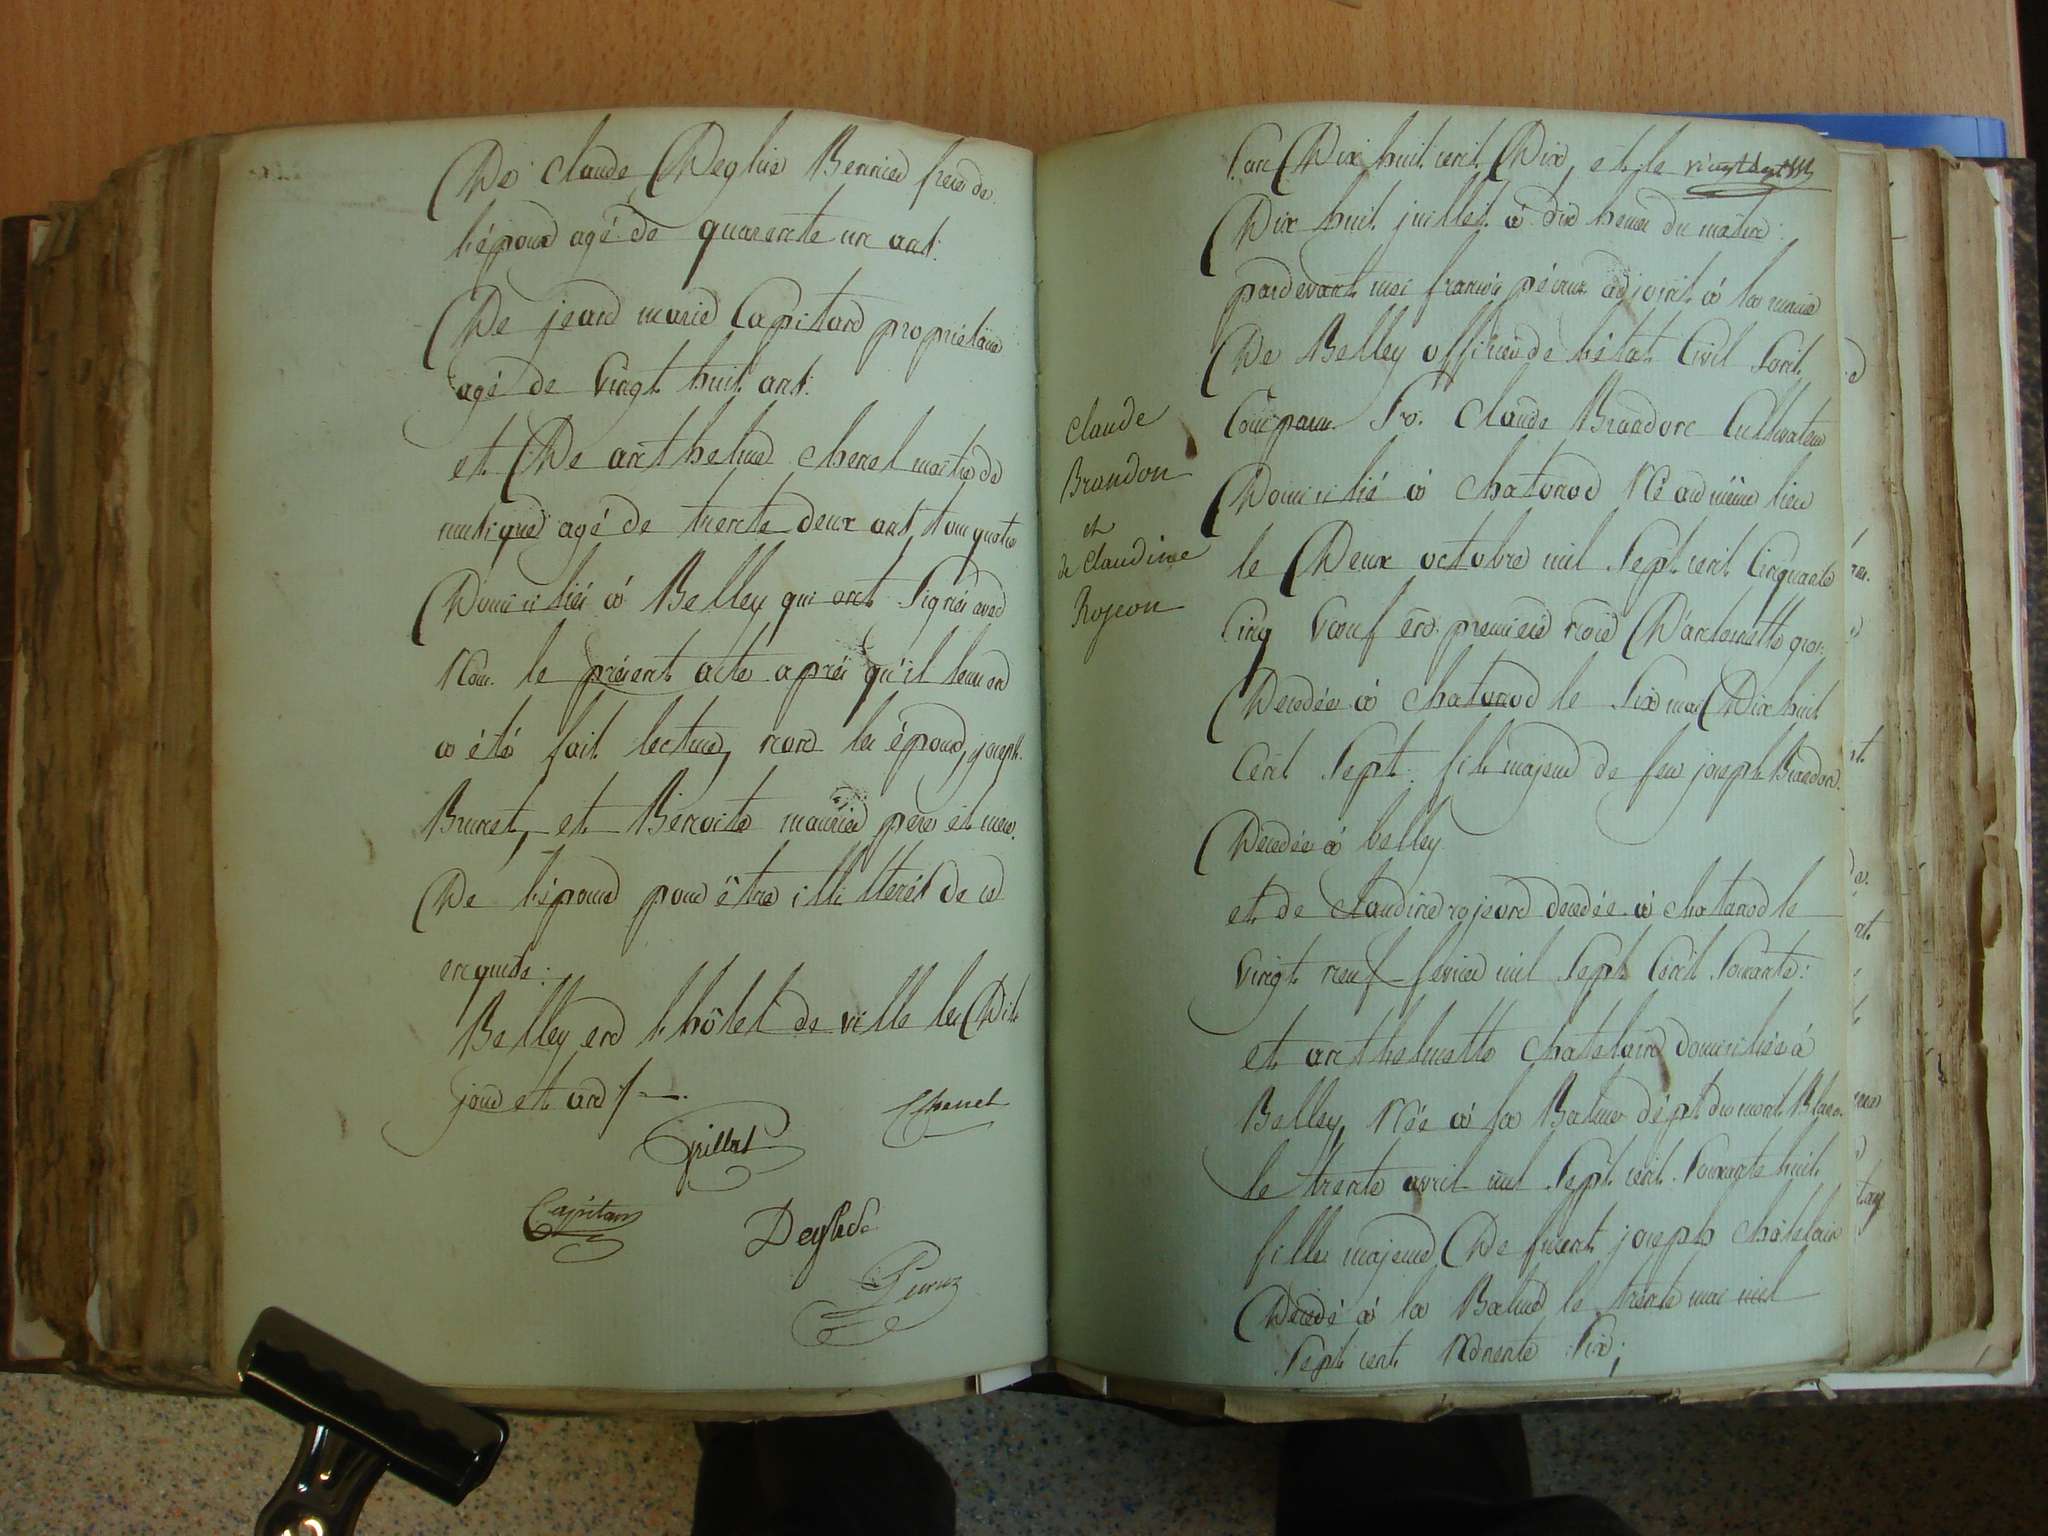 De Claude Deglise Bernier frere de
l'époux agé de quarente un ans.
De jean marie Capitan propriétaire
agé de vingt huit ans.
et De anthelme chenel maitre de
musique agé de trente deux ans tous quatre
Domiciliés à Belley qui ont signés avec
Nous le présent acte après qu'il leur en
a été fait lecture, non les époux, joseph
Brunet, et Benoite maurier père et mere
De l'épouse pour être illitterés de ce
enquis.
Belley en l'hôtel de ville les Dit
jour et an /-.
Grillat
Chenel
Capitan
Peruz
L'an Dix huit cent Dix, et le
Dix huit juillet à dix heures du matin
pardevant moi francois péruz adjoint à la mairie
De Belley officier de l'état Civil sont
Comparus Sr. Claude Brandon Cultivateur
Domicilié à chatonod Né au même lieu
le Deux octobre mil sept cent Cinquante
Cinq Vœuf en premiere noie D'antoinette gros
Decedée à chatonod le six mai Dix huit
Cent sept. fils majeur de feu joseph Brandon
Decedée à belley
et de claudine rojeon decedée à chatonod le
vingt neuf fevrier mil sept cent soixante.
et anthelmette chatelain domiciliée à
Belley Née à la Balme dépt. du mont Blanc
le trente avril mil sept cent soixante huit
fille majeure De furent joseph châtelain
Decedé à la Balme le trente mai mil
sept cent Nonente six;
Claude
Brandon
et
de Claudine
Rojeon